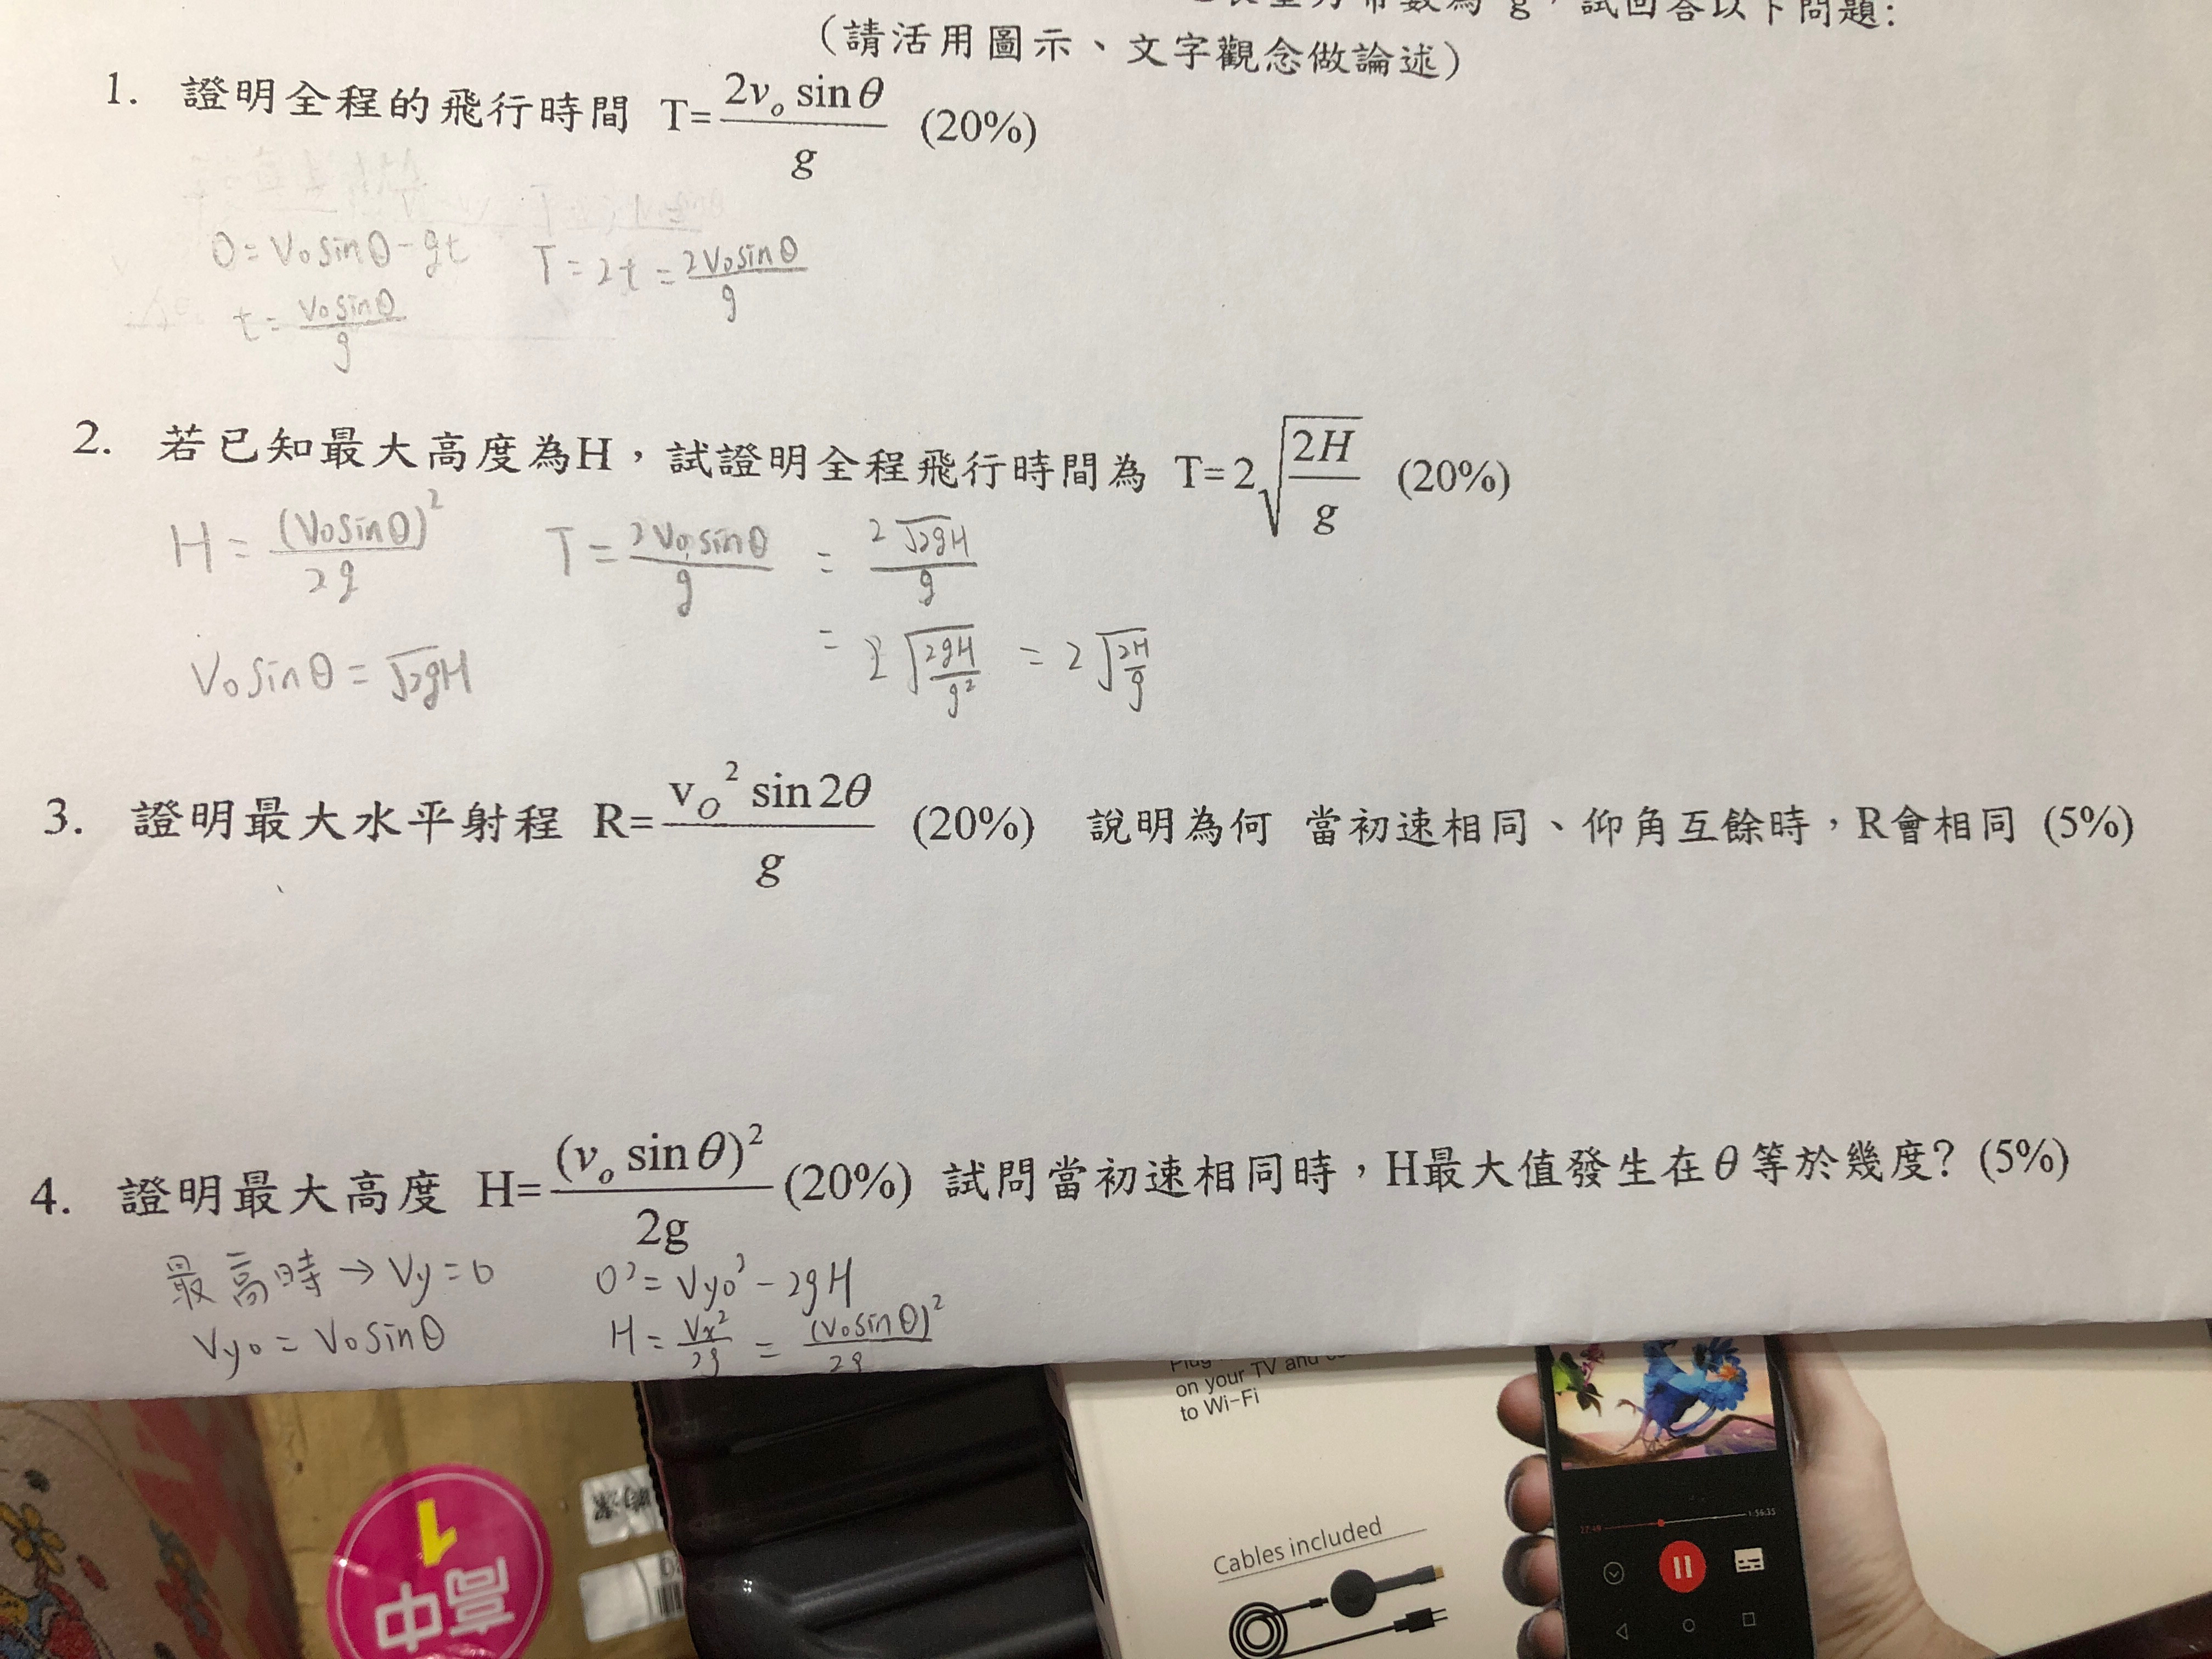 常數為 g,試回答以下問題:
(請活用圖示、文字觀念做論述)
1. 證明全程的飛行時間 T=\frac{2v_o sinθ}{g} (20%)
0=V_0 sinθ-gt T=2t=\frac{2V_0 sinθ}{g}
t=\frac{V_0 sinθ}{g}
2. 若已知最大高度為H,試證明全程飛行時間為 T=2\sqrt{\frac{2H}{g}} (20%)
H=\frac{(V_0 sinθ)^2}{2g} T=\frac{2V_0 sinθ}{g} =\frac{2\sqrt{2gH}}{g}
V_0 sinθ=\sqrt{2gH} =2\sqrt{\frac{2gH}{g^2}} =2\sqrt{\frac{2H}{g}}
3. 證明最大水平射程 R=\frac{v_O^2 sin2θ}{g} (20%) 說明為何 當初速相同、仰角互餘時,R會相同 (5%)
4. 證明最大高度 H=\frac{(v_o sinθ)^2}{2g} (20%) 試問當初速相同時,H最大值發生在θ等於幾度? (5%)
最高時→Vy=0 0^2=V_{y0}^2-2gH
V_{y0}=V_0 sinθ H=\frac{Vx^2}{2g}=\frac{(V_0 sinθ)^2}{2g}
on your TV and
to Wi-Fi
Cables included
27:49
1:56:35
高中
1